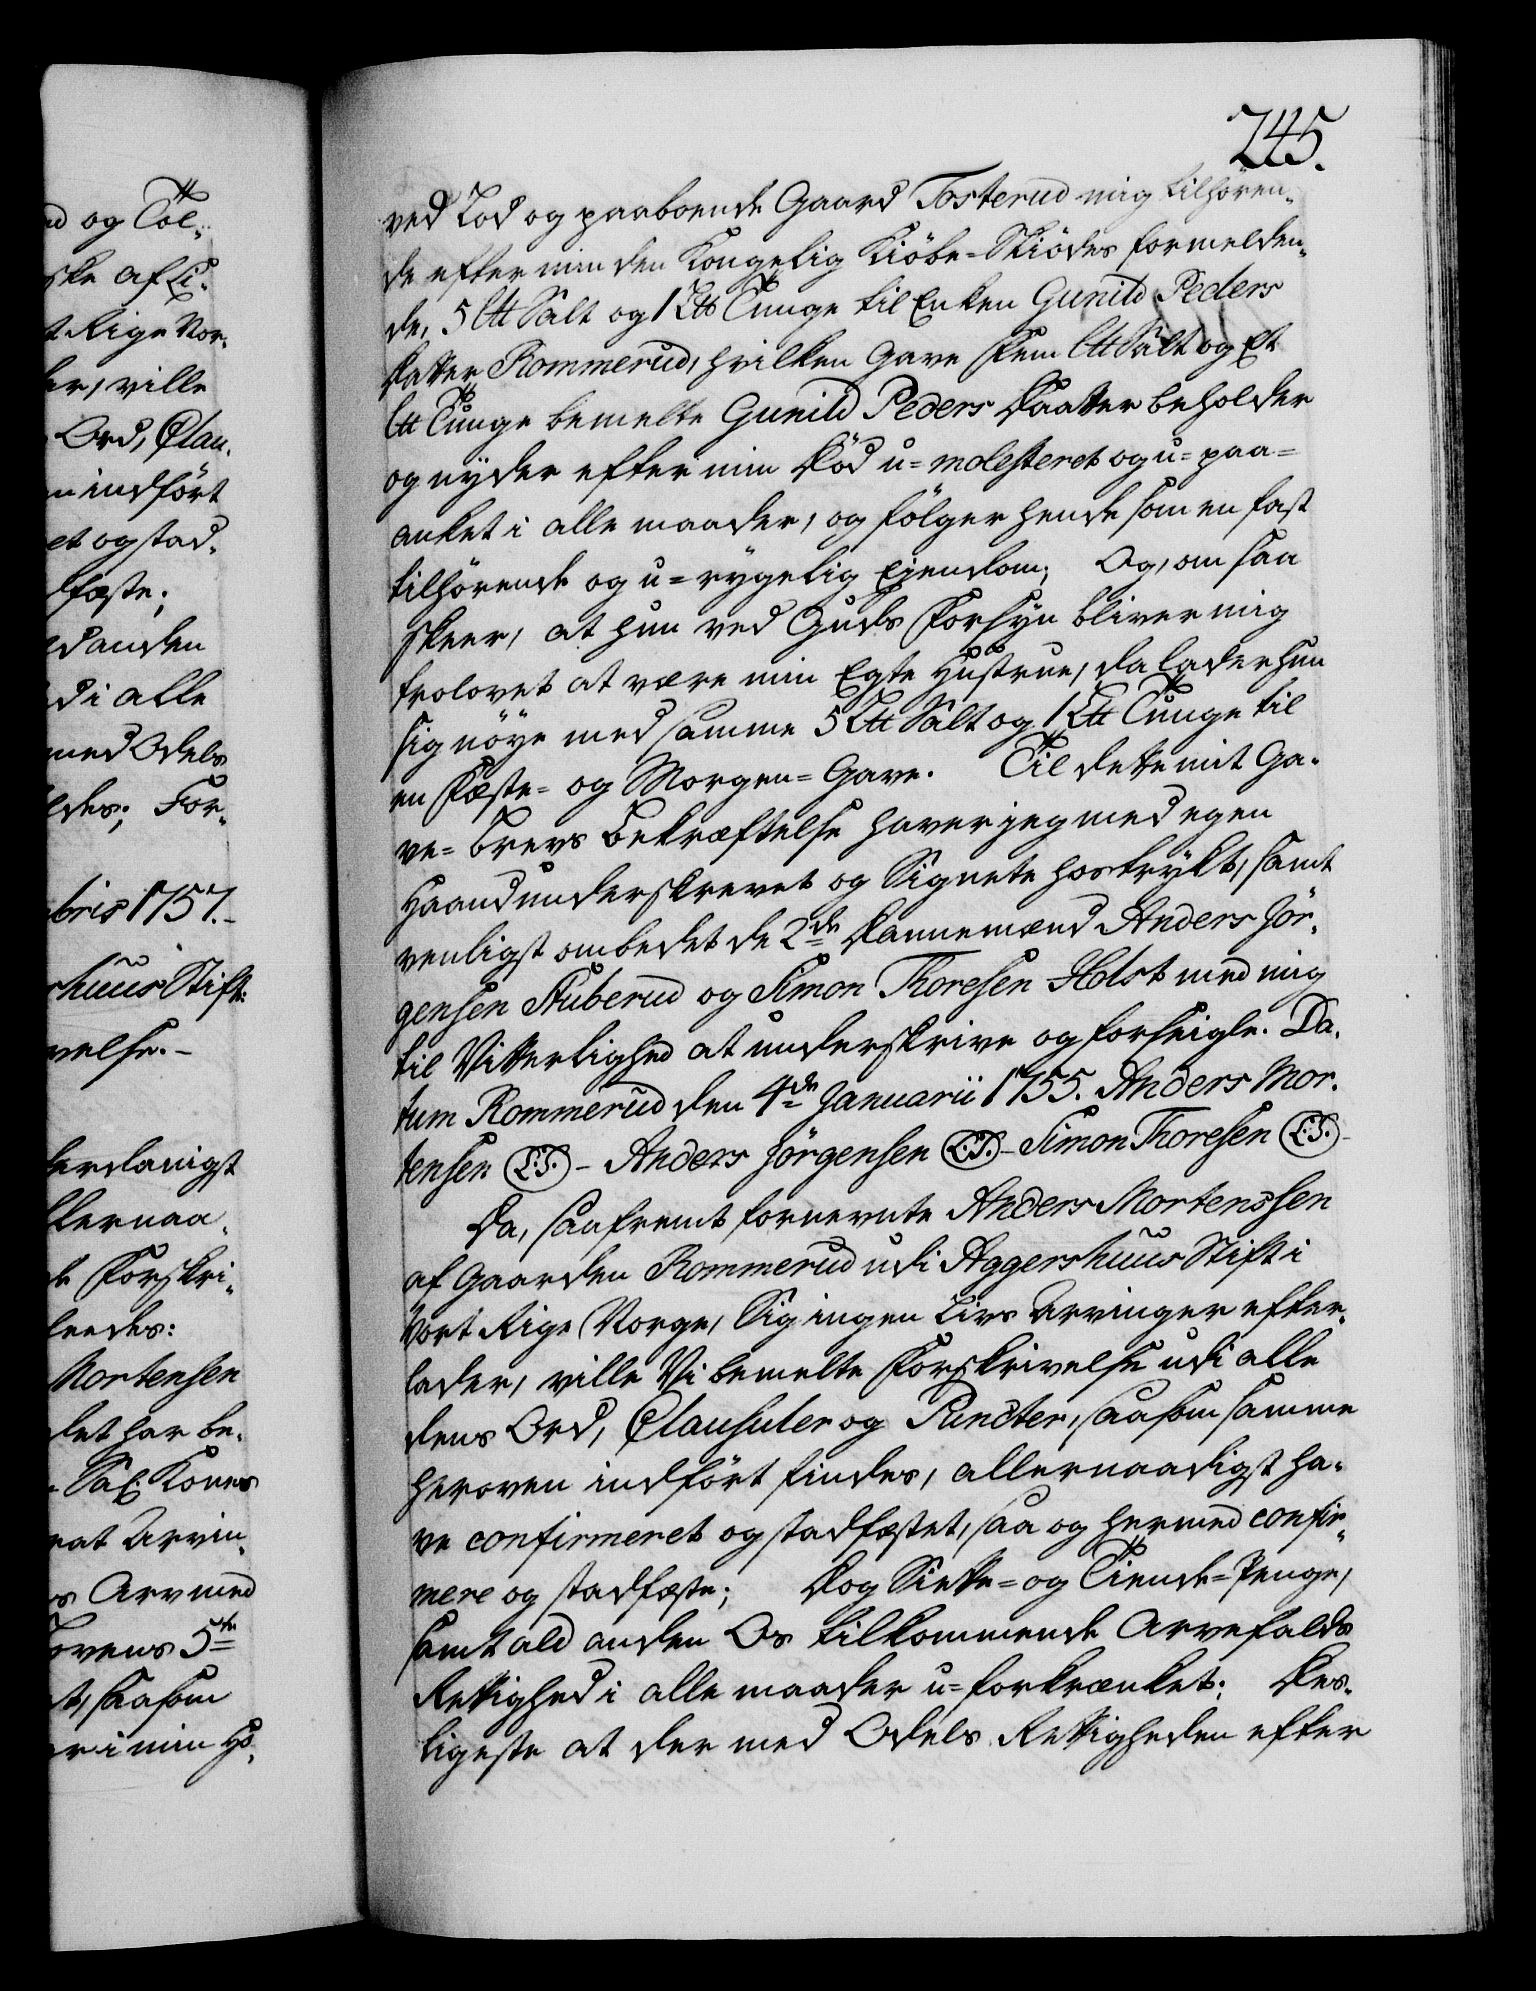 245.
ved Lod og paaboende Gaard Tosterud mig tilhören-
de efter min den Kongelig Kiöbe-Skiödes formelden-
de, 5 L℔ Salt og 1 L℔ Tunge til Enken Gunild Peders
Datter Rommerud, hvilken Gave Fem L℔ Salt og Et
L℔ Tunge bemelte Gunild Peders Daatter beholder
og nyder efter min Död u-molesteret og u-paa-
anket i alle maader, og fölger hende som en fast
tilhörende og u-rygelig Ejendom; Og, om saa
skeer, at hun ved Guds Forsyn bliver mig
trolovet at være min Egte Hustrue, da lader hun
sig nöye med samme 5 L℔ Salt og 1 L℔ Tunge til
en Fæste- og Morgen-Gave. Til dette mit Ga-
ve-Brevs Bekræftelse haver jeg med egen
Haand underskrevet og Signete hostrykt, samt
venligst ombedet de 2de Dannemænd Anders Jör-
gensen Stuberud og Simon Thoresen Holst med mig
til Vitterlighed at underskrive og forseigle. Da-
tum Rommerud den 4de Januarii 1755. Anders Mor-
tensen (L.S.) - Anders Jörgensen (L.S.) - Simon Thoresen (L.S.) -
Da, saafremt fornevnte Anders Mortenssen
af Gaarden Rommerud udi Aggershuus Stift i
Vort Rige Norge, Sig ingen Livs Arvinger efter-
lader, ville Vi bemelte Forskrivelse udi alle
dens Ord, Clausuler og Puncter, saasom samme
heroven indfört findes, allernaadigst ha-
ve confirmeret og stadfæstet, saa og hermed confir-
mere og stadfæste; Dog Siette- og Tiende-Penge,
samt ald anden Os tilkommende Arvefalds
Rettighed i alle maader u-forkrænket; Des-
ligeste at der med Odels Rettigheden efter